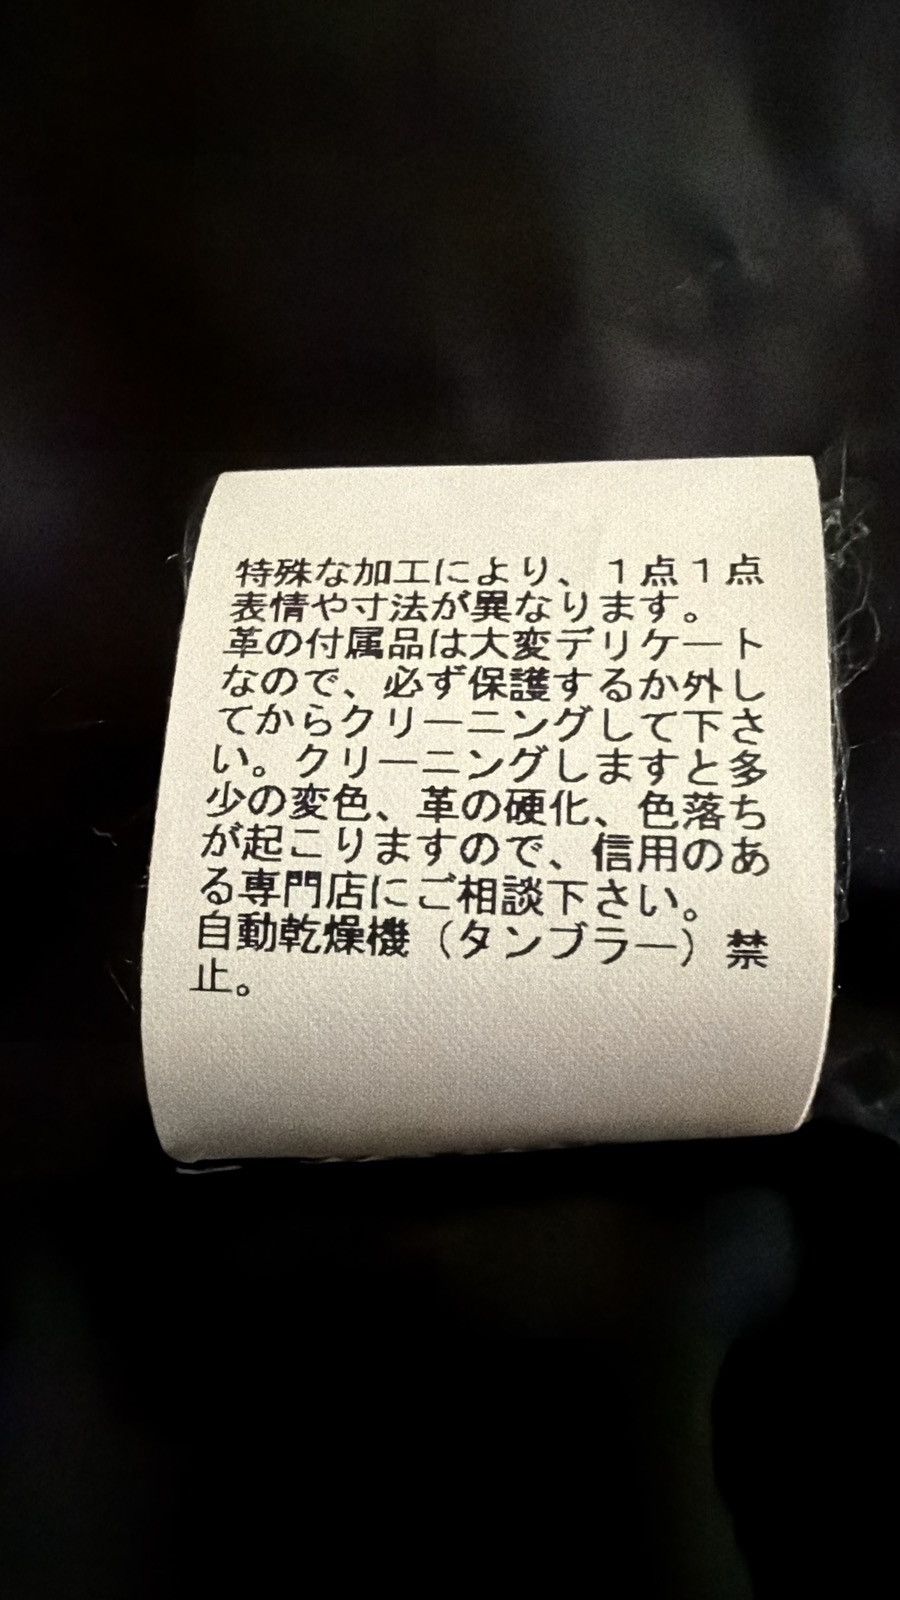 特殊な加工により、１点１点
表情や寸法が異なります。
革の付属品は大変デリケート
なので、必ず保護するか外し
てからクリーニングして下さ
い。クリーニングしますと多
少の変色、革の硬化、色落ち
が起こりますので、信用のあ
る専門店にご相談下さい。
自動乾燥機（タンブラー）禁
止。